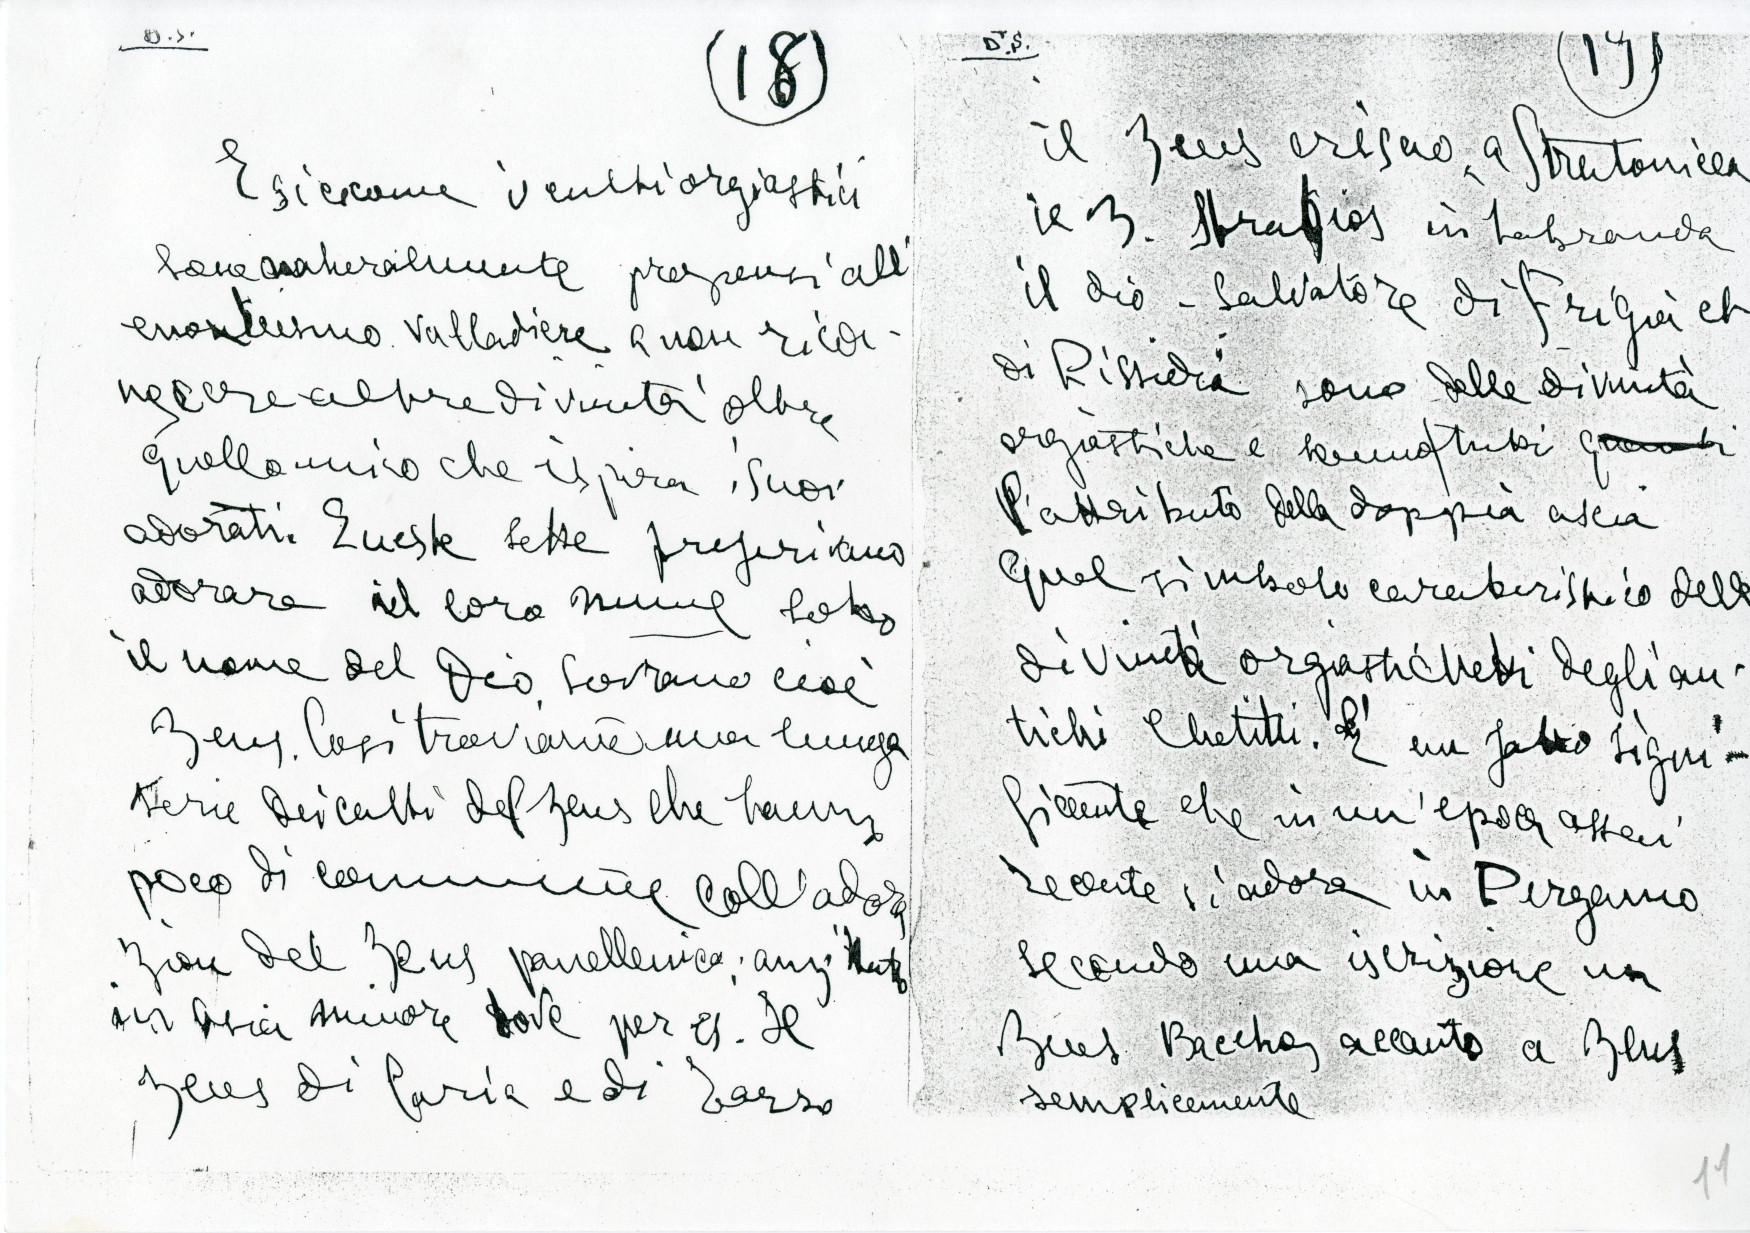 D.S.
(18)
E siccome i culti orgiastici
sono naturalmente propensi all'
enoteismo valladire a non rico-
noscere altre divinità oltre
quella unico che ispira i suoi
adorati. Queste sette preferivano
adorare il loro nume sotto
il nome del Dio Sovrano cioè
Zeus. Così troviamo una lunga
serie dei culti del Zeus che hanno
poco di commune coll'adora
zion del Zeus panellenico; anzitutto
in Asia minore dove per es. Il
Zeus di Caria e di Tarso
D.S.
(19)
il Zeus crisao, a Stratonicea
il Z. Stratios in Labranda
il dio-Salvatore di Frigia et
di Pissidia sono delle divinità
orgiastiche e hanno tutti quanti
l'attributo della doppia ascia
qual simbolo caratteristico delle
divinità orgiastiche degli an-
tichi Chetitti. È un fatto signi-
ficante che in un'epoca assai
recente si adora in Pergamo
secondo una iscrizione un
Zeus Bacchos accanto a Zeus
semplicemente
11